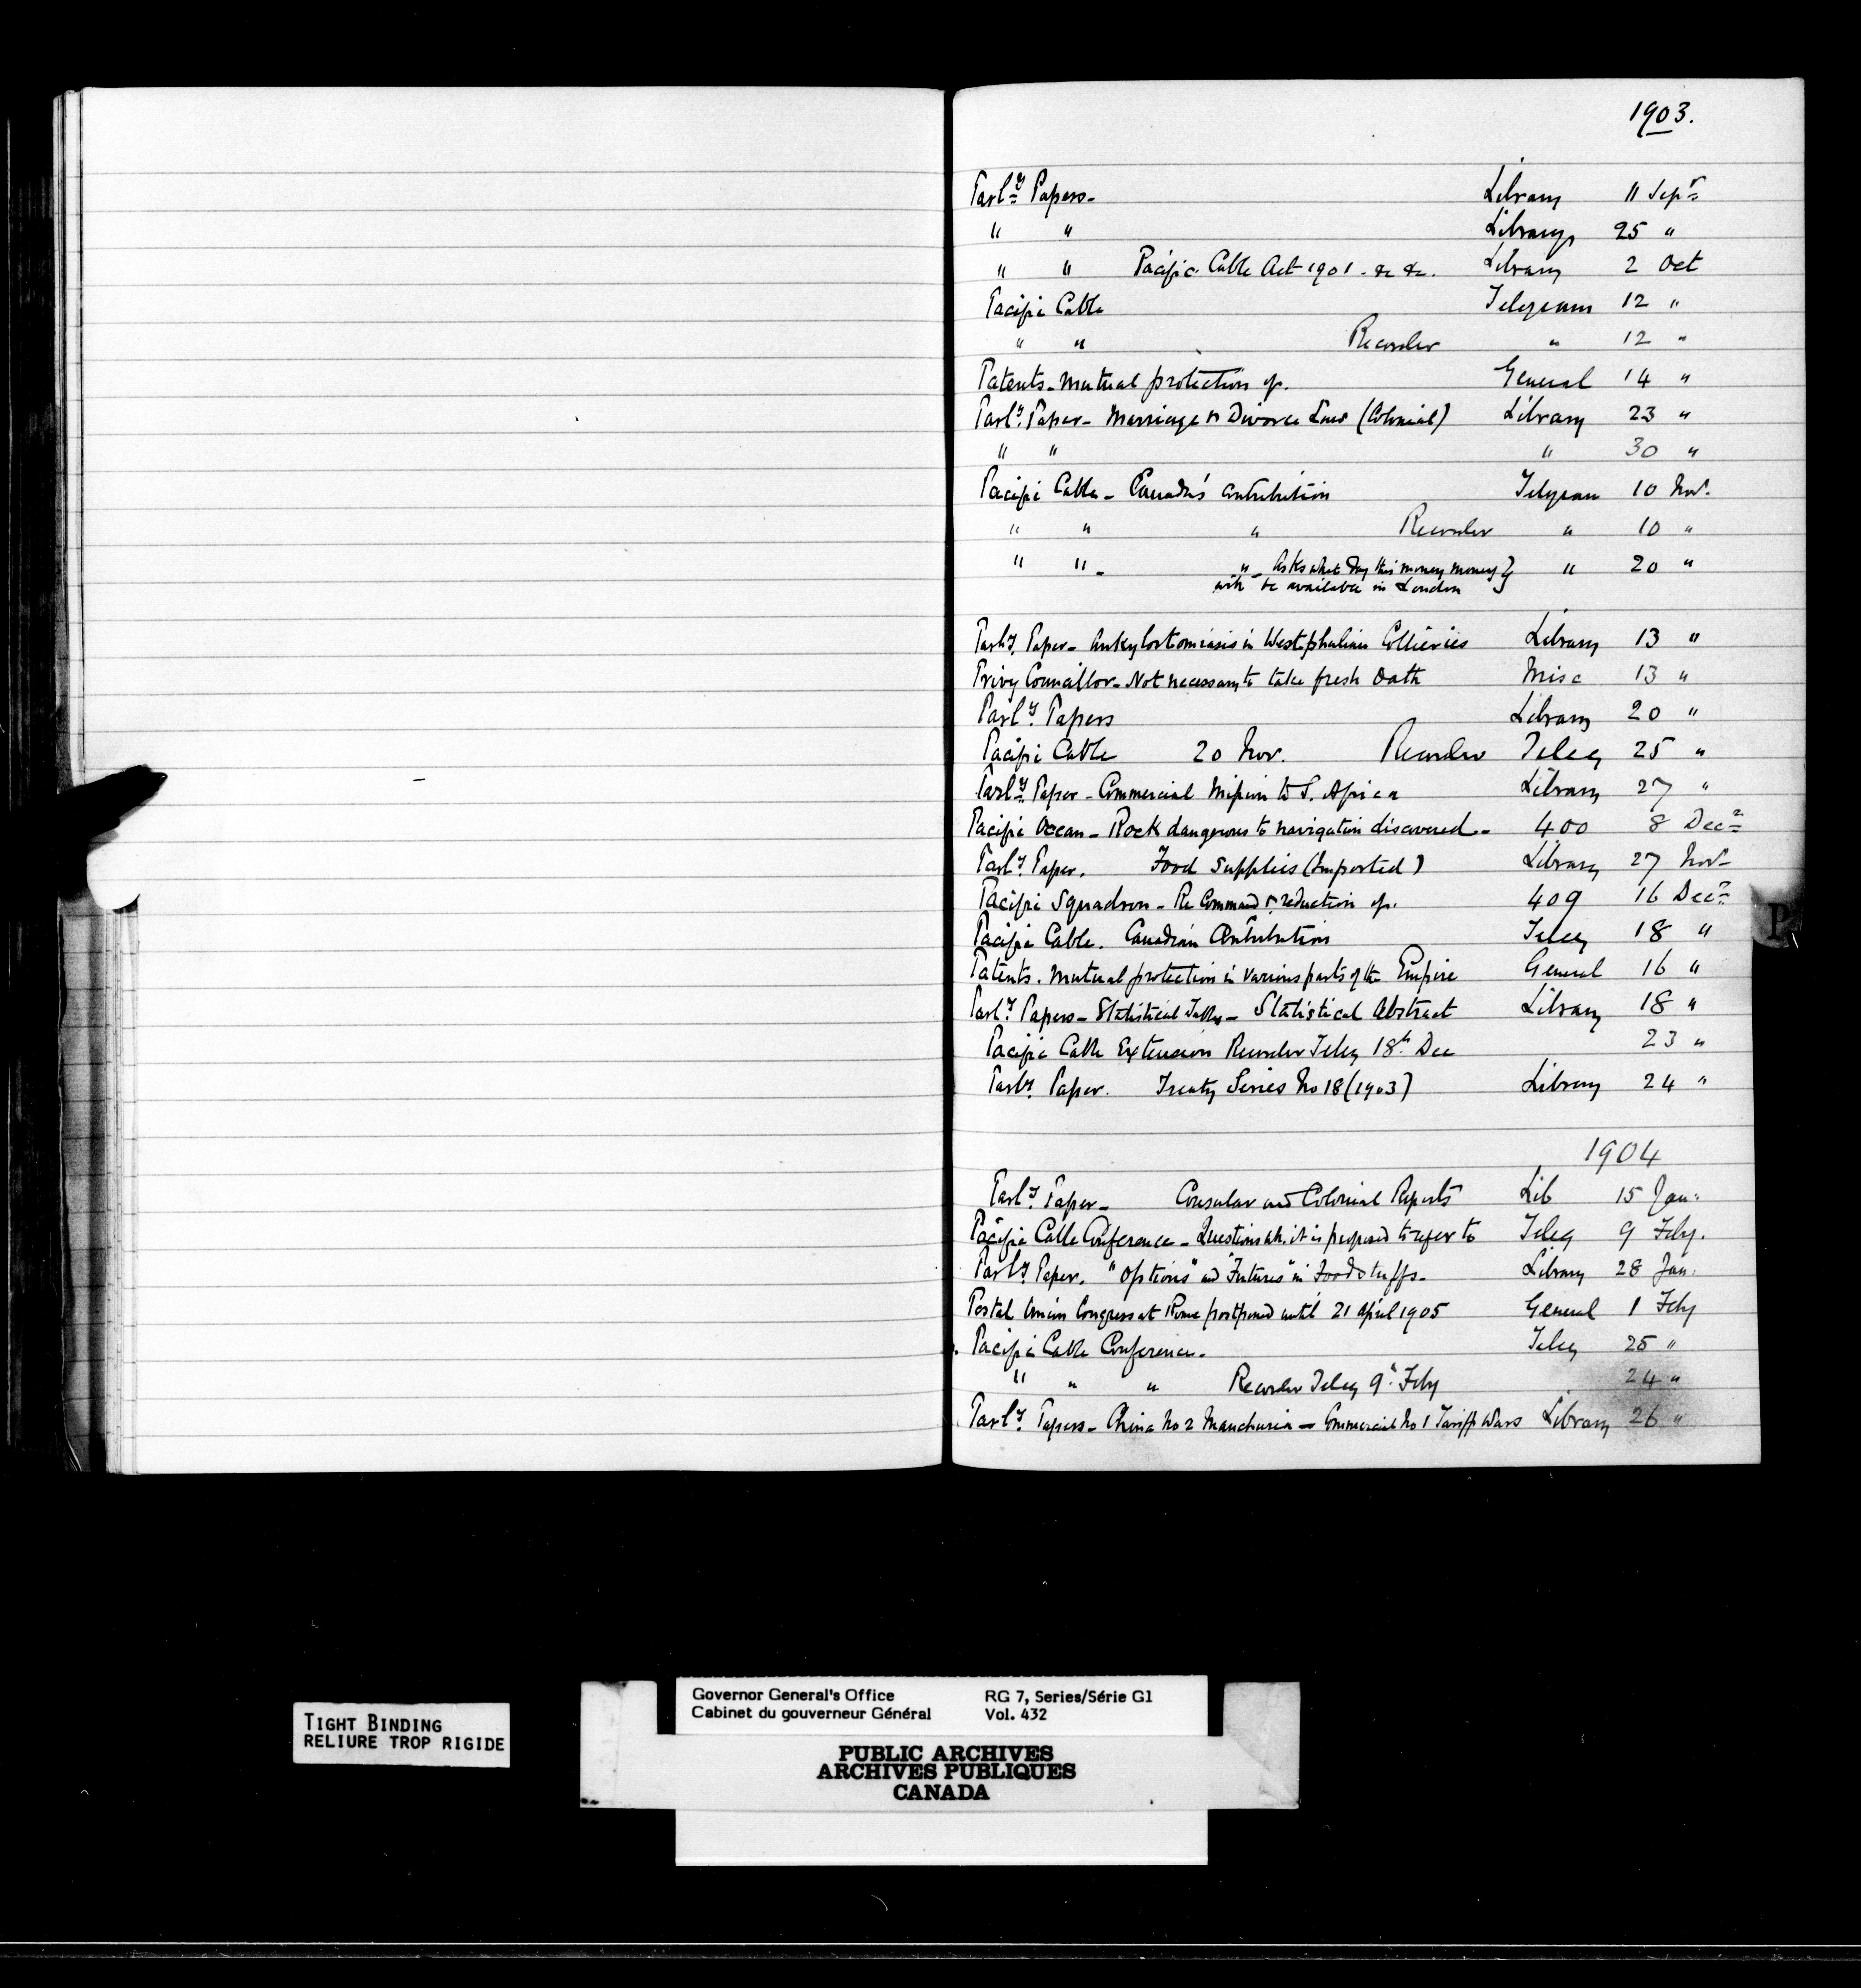 1903.
Parly Papers - Library 11 Sepr
" " Library 25 "
" " Pacific Cable Act 1901 - &c &c. Library 2 Oct
Pacific Cable Telegram 12 "
" " Recorder " 12 "
Patents - Mutual protection of. General 14 "
Parly Paper - Marriage & Divorce Laws (Colonial) Library 23 "
" " " 30 "
Pacific Cable - Canada's Contribution Telegram 10 Nov.
" " " Recorder " 10 "
" " - " - Asks what day this money money } " 20 "
will be available in London
Parly Paper - Ankylostomiasis in Westphalian Collieries Library 13 "
Privy Councillor - Not necessary to take fresh Oath Misc 13 "
Parly Papers Library 20 "
Pacific Cable 20 Nov. Recorder Teleg 25 "
Parly Paper - Commercial Mission to S. Africa Library 27 "
Pacific Ocean - Rock dangerous to navigation discovered - 400 8 Decr
Parly Paper. Food Supplies (Imported) Library 27 Nov -
Pacific Squadron - Re Command & reduction of. 409 16 Decr
Pacific Cable. Canadian Contribution Teleg 18 "
Patents. Mutual protection in various parts of the Empire General 16 "
Parly Papers - Statistical Tables - Statistical Abstract Library 18 "
Pacific Cable Extension Recorder Teleg 18th Dec 23 "
Parly Paper. Treaty Series No 18 (1903) Library 24 "
1904
Parly Paper - Consular and Colonial Reports Lib 15 Jan.
Pacific Cable Conference - Questions wh. it is proposed to refer to Teleg 9 Feby.
Parly Paper. "Options" and "Futures" in Foodstuffs - Library 28 Jan.
Postal Union Congress at Rome postponed until 21 April 1905 General 1 Feby
Pacific Cable Conference. Teleg 25 "
" " " Recorder Teleg 9th Feby 24 "
Parly Papers - China No 2 Manchuria - Commercial No 1 Tariff Wars Library 26 "
P
TIGHT BINDING
RELIURE TROP RIGIDE
Governor General's Office RG 7, Series/Série G1
Cabinet du gouverneur Général Vol. 432
PUBLIC ARCHIVES
ARCHIVES PUBLIQUES
CANADA